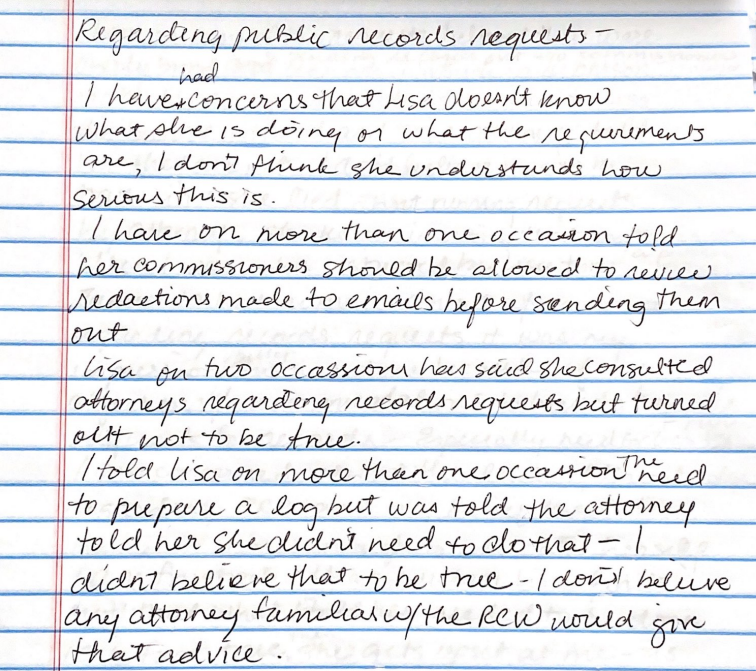 Regarding public records requests -
had
I have concerns that Lisa doesn't know
what she is doing or what the requirements
are, I don't think she understands how
serious this is.
I have on more than one occasion told
her commissioners should be allowed to review
redactions made to emails before sending them
out
Lisa on two occassions has said she consulted
attorneys regarding records requests but turned
out not to be true.
I told Lisa on more than one occassion The need
to prepare a log but was told the attorney
told her she didn't need to do that - I
didn't believe that to be true - I don't believe
any attorney familiar w/the RCW would give
that advice.